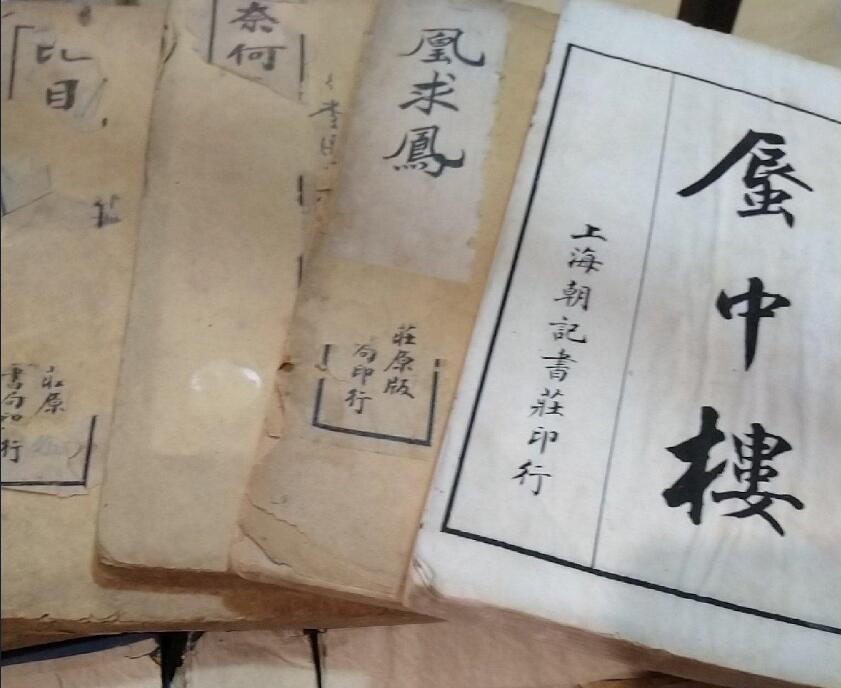 蜃中樓
上海朝記書莊印行
凰求鳳
莊原版
局印行
奈何
比目
莊原
書局印行